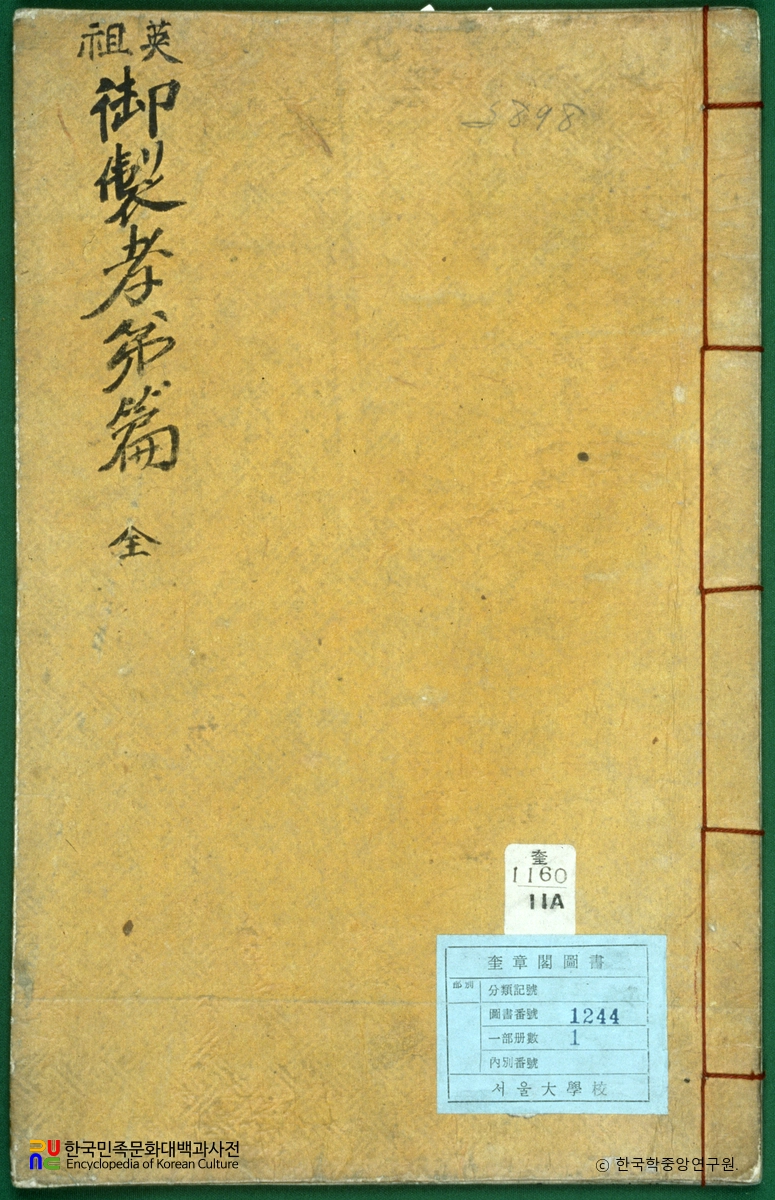 英祖
御製孝弟篇
全
奎
1160
11A
奎章閣圖書
部別
分類記號
圖書番號 1244
一部册數 1
內別番號
서울大學校
한국민족문화대백과사전
Encyclopedia of Korean Culture
© 한국학중앙연구원.